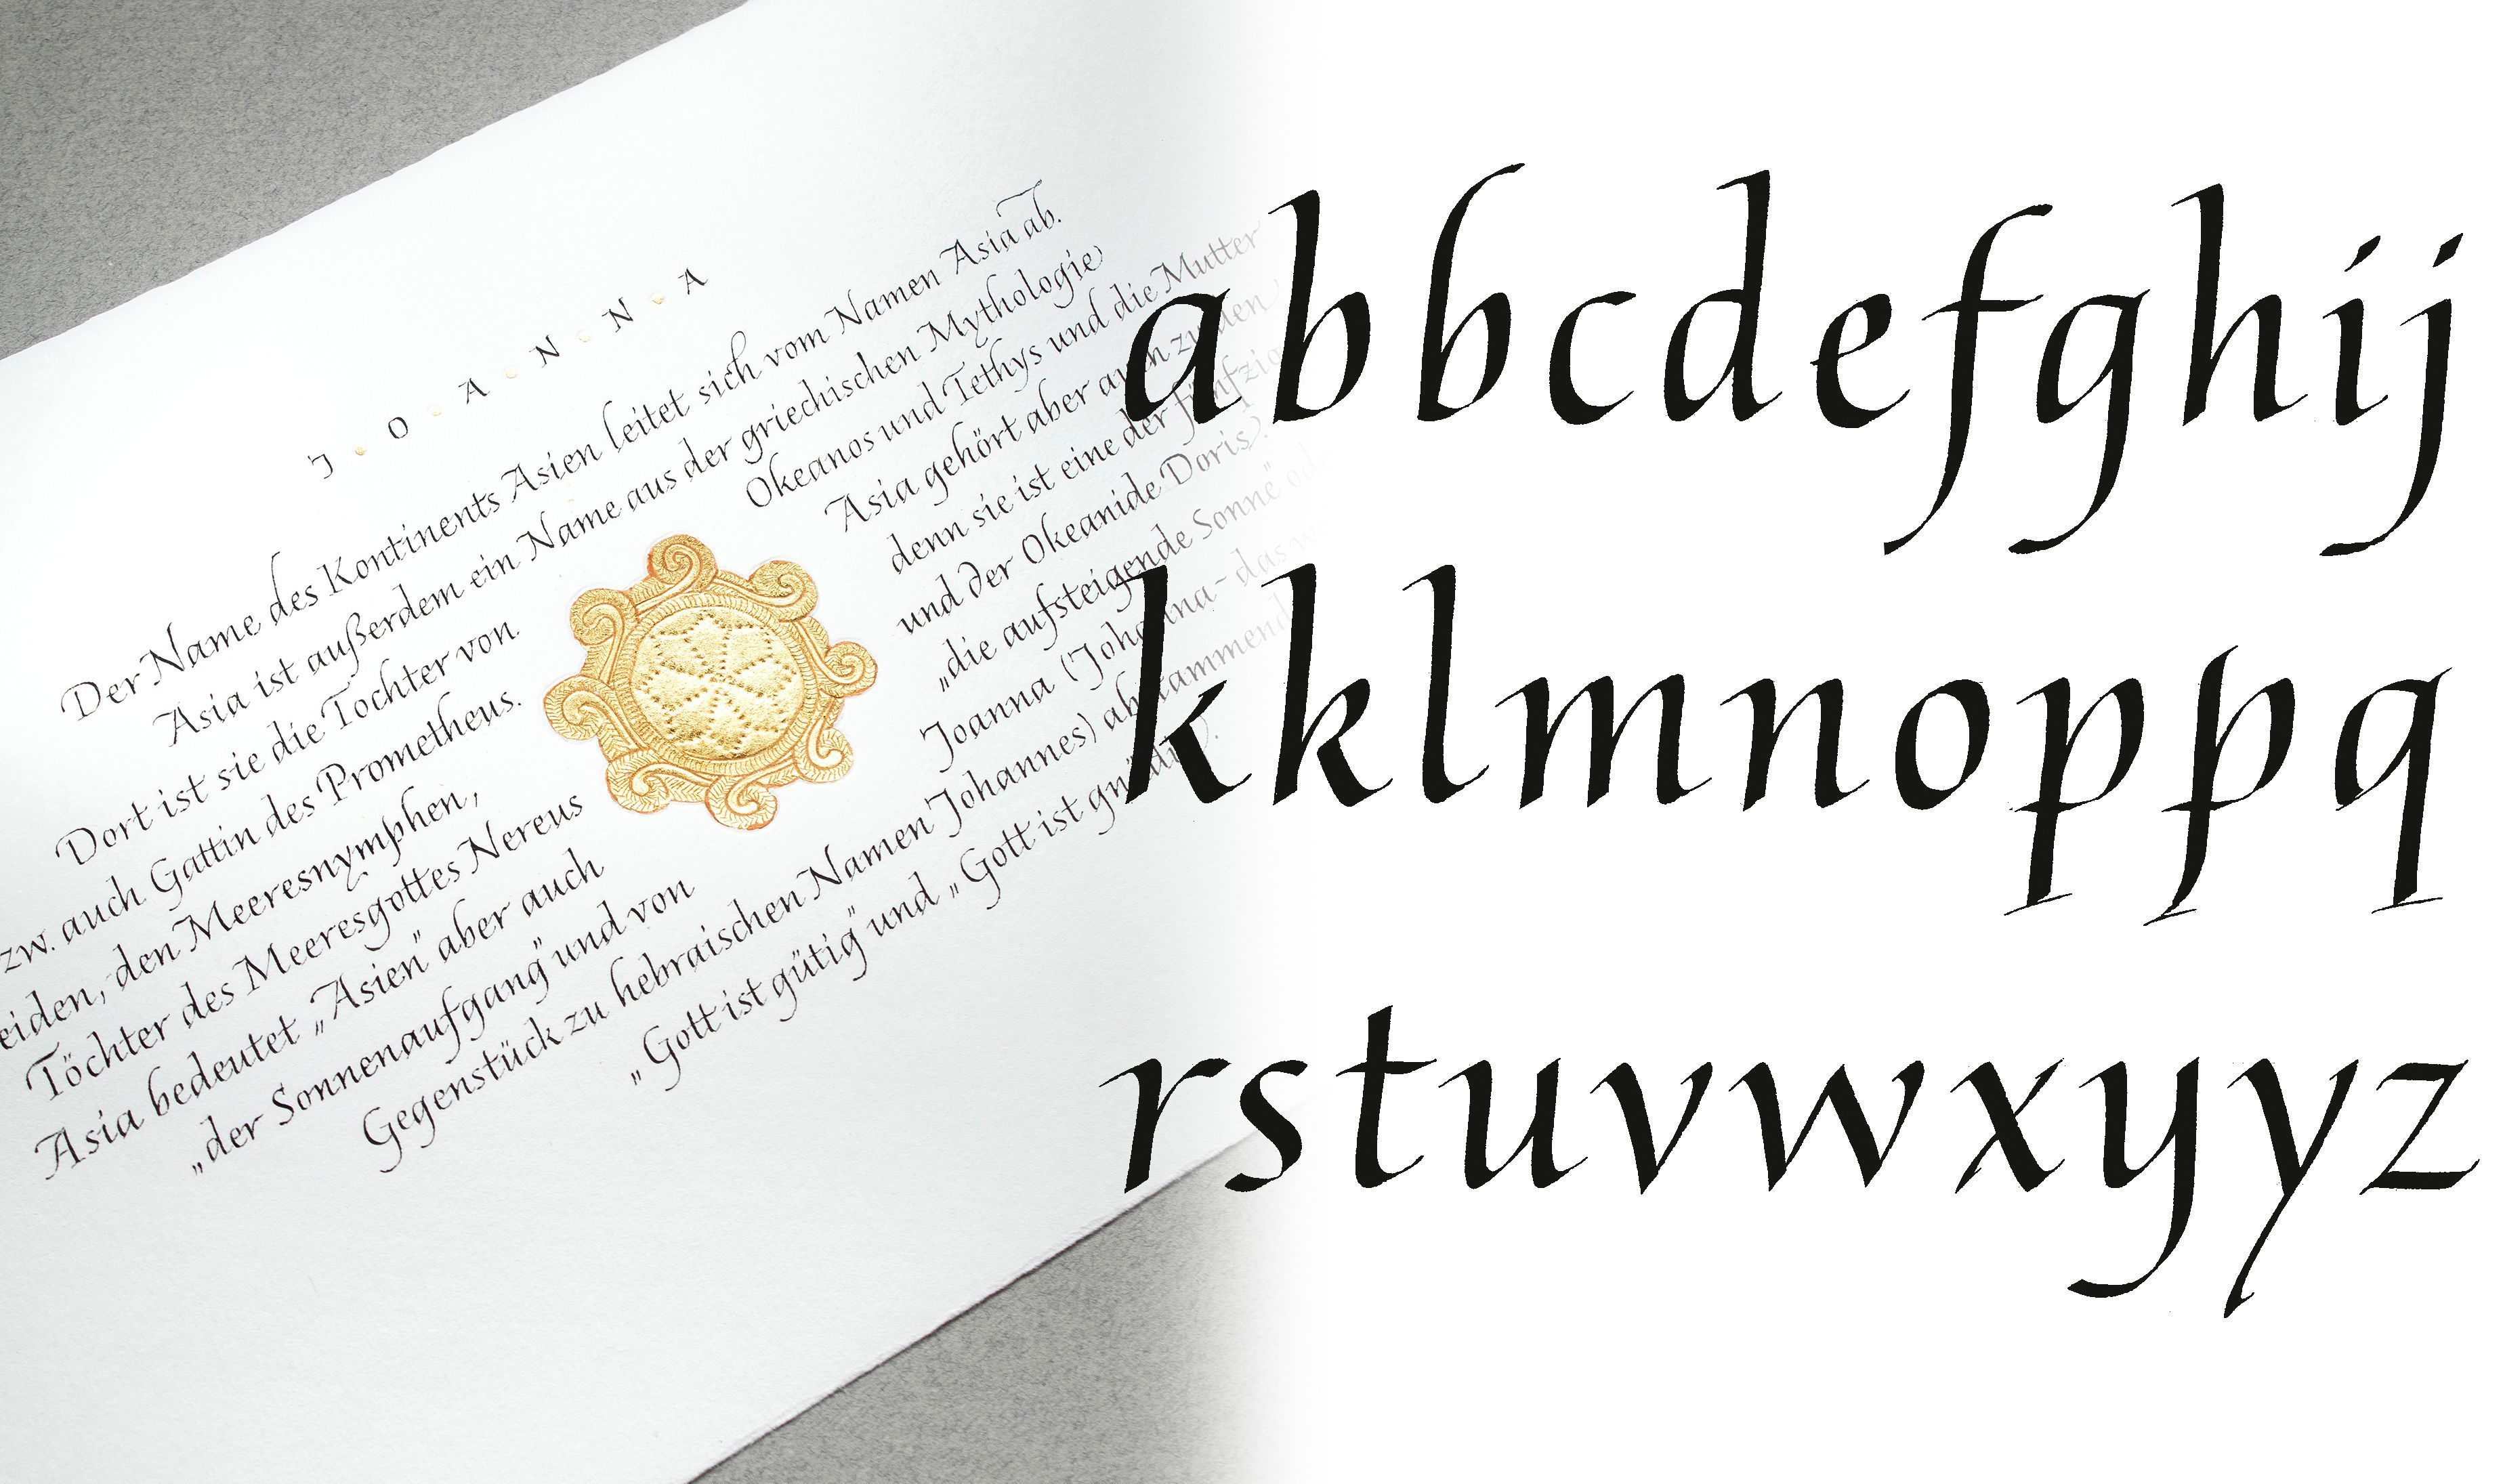 J · O · A · N · N · A
Der Name des Kontinents Asien leitet sich vom Namen Asia ab.
Asia ist außerdem ein Name aus der griechischen Mythologie
Dort ist sie die Tochter von. Okeanos und Tethys und die Mutter
zw. auch Gattin des Prometheus. Asia gehört aber auch zu den
eiden, den Meeresnymphen, denn sie ist eine der
Töchter des Meeresgottes Nereus und der Okeanide Doris).
Asia bedeutet „Asien" aber auch „die aufsteigende Sonne"
„der Sonnenaufgang" und von Joanna (Johanna - das
Gegenstück zu hebraischen Namen Johannes) abstammend
„Gott ist gütig" und „Gott ist gnädig").
abbcdefghij
kklmnoppq
rstuvwxyyz